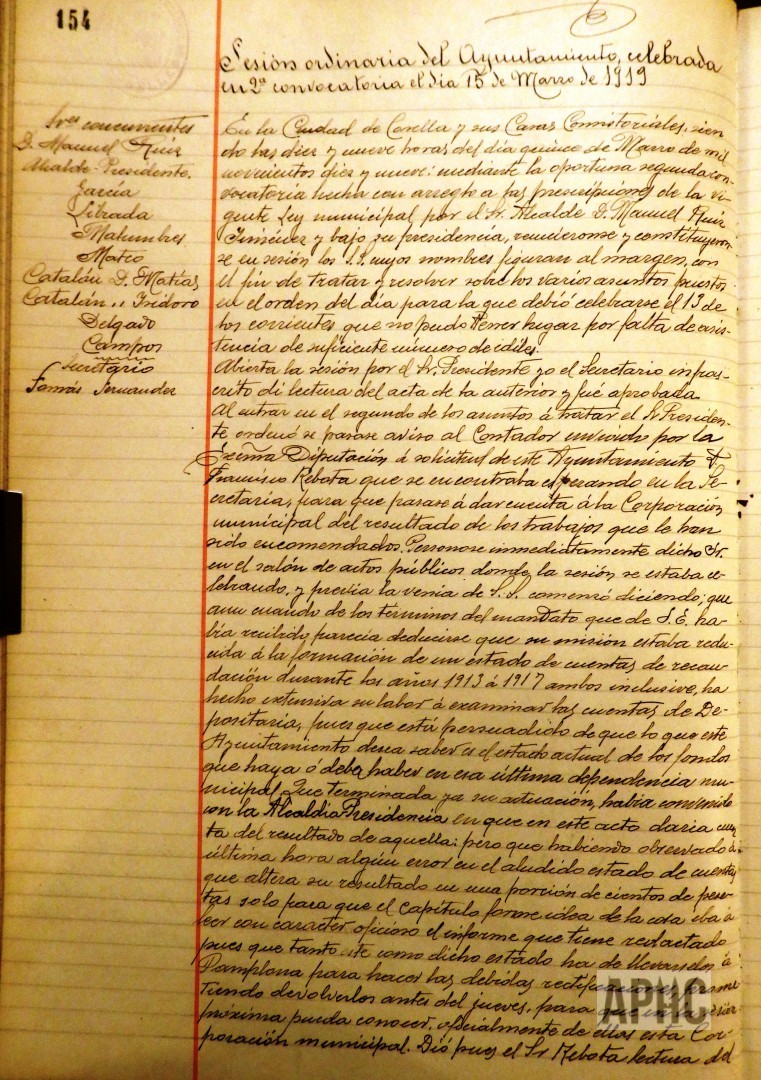 154
Sesión ordinaria del Ayuntamiento, celebrada
en 2ª convocatoria el dia 15 de Marzo de 1919
Sres concurrentes
D. Manuel Ruiz
Alcalde-Presidente.
García
Librada
Matumbres
Mateo
Catalán D. Matías
Catalán " Isidoro
Delgado
Campos
Secretario
Tomás Fernandez
En la Ciudad de Corella y sus Casas Consistoriales, sien
do las diez y nueve horas del día quince de Marzo de mil
novecientos diez y nueve: mediante la oportuna segunda con-
vocatoria hecha con arreglo a las prescripciones de la vi-
gente Ley municipal por el Sr. Alcalde D. Manuel Ruiz
Jiménez y bajo su presidencia, reunieronse y constituyeron-
se en sesión los S.S. cuyos nombres figuran al margen, con
el fin de tratar y resolver sobre los varios asuntos puestos
en el orden del día para la que debió celebrarse el 13 de
los corrientes que no pudo tener lugar por falta de asis-
tencia de suficiente número de ediles.
Abierta la sesión por el Sr. Presidente yo el Secretario infras-
crito di lectura del acta de la anterior y fué aprobada
Al entrar en el segundo de los asuntos á tratar el Sr Presiden-
te ordenó se pasase aviso al Contador enviado por la
Excma Diputación á solicitud de este Ayuntamiento D.
Francisco Rebota que se encontraba esperando en la Se-
cretaria, para que pasase á dar cuenta á la Corporación
municipal del resultado de los trabajos que le han
sido encomendados. Personose inmediatamente dicho Sr.
en el salón de actos públicos donde la sesión se estaba ce-
lebrando, y previa la venia de S.S. comenzó diciendo; que
aun cuando de los términos del mandato que de S.E. ha-
bía recibido, parecia deducirse que su misión estaba redu-
cida á la formación de un estado de cuentas de recau-
dación durante los años 1913 á 1917 ambos inclusive, ha
hecho extensiva su labor á examinar las cuentas de De-
positaria, pues que está persuadido de que lo que este
Ayuntamiento desea saber es el estado actual de los fondos
que haya ó deba haber en esa última dependencia mu-
nicipal. Que terminada ya su actuación, habia convenido
con la Alcaldia Presidencia en que en este acto daria cuen
ta del resultado de aquella: pero que habiendo observado á
última hora algún error en el aludido estado de cuentas
que altera su resultado en una porción de cientos de pese-
tas solo para que el Capítulo forme idea de la cosa iba á
leer con caracter oficioso el informe que tiene redactado
pues que tanto este como dicho estado ha de llevarselos á
Pamplona para hacer las debidas rectificaciones, prome
tiendo devolverlos antes del jueves, para que en la sesión
próxima pueda conocer, oficialmente de ellos esta Cor-
poración municipal. Dió pues el Sr Rebota lectura del
APHC